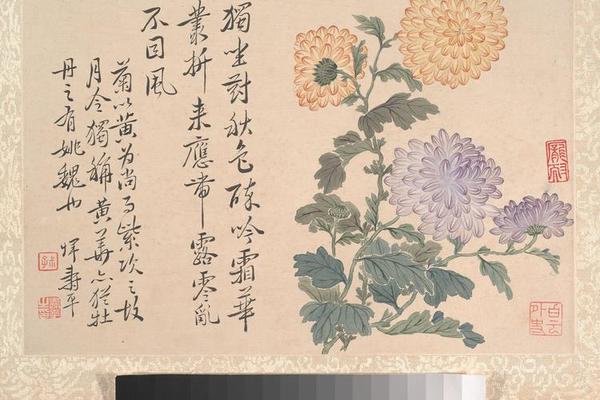 獨坐對秋色酥吟霜華
叢折来應帶露零亂
不因風
菊以黃为尚而紫次之故
月令獨稱黃華亦猶牡
丹之有姚魏也
惲壽平
白雲
外史